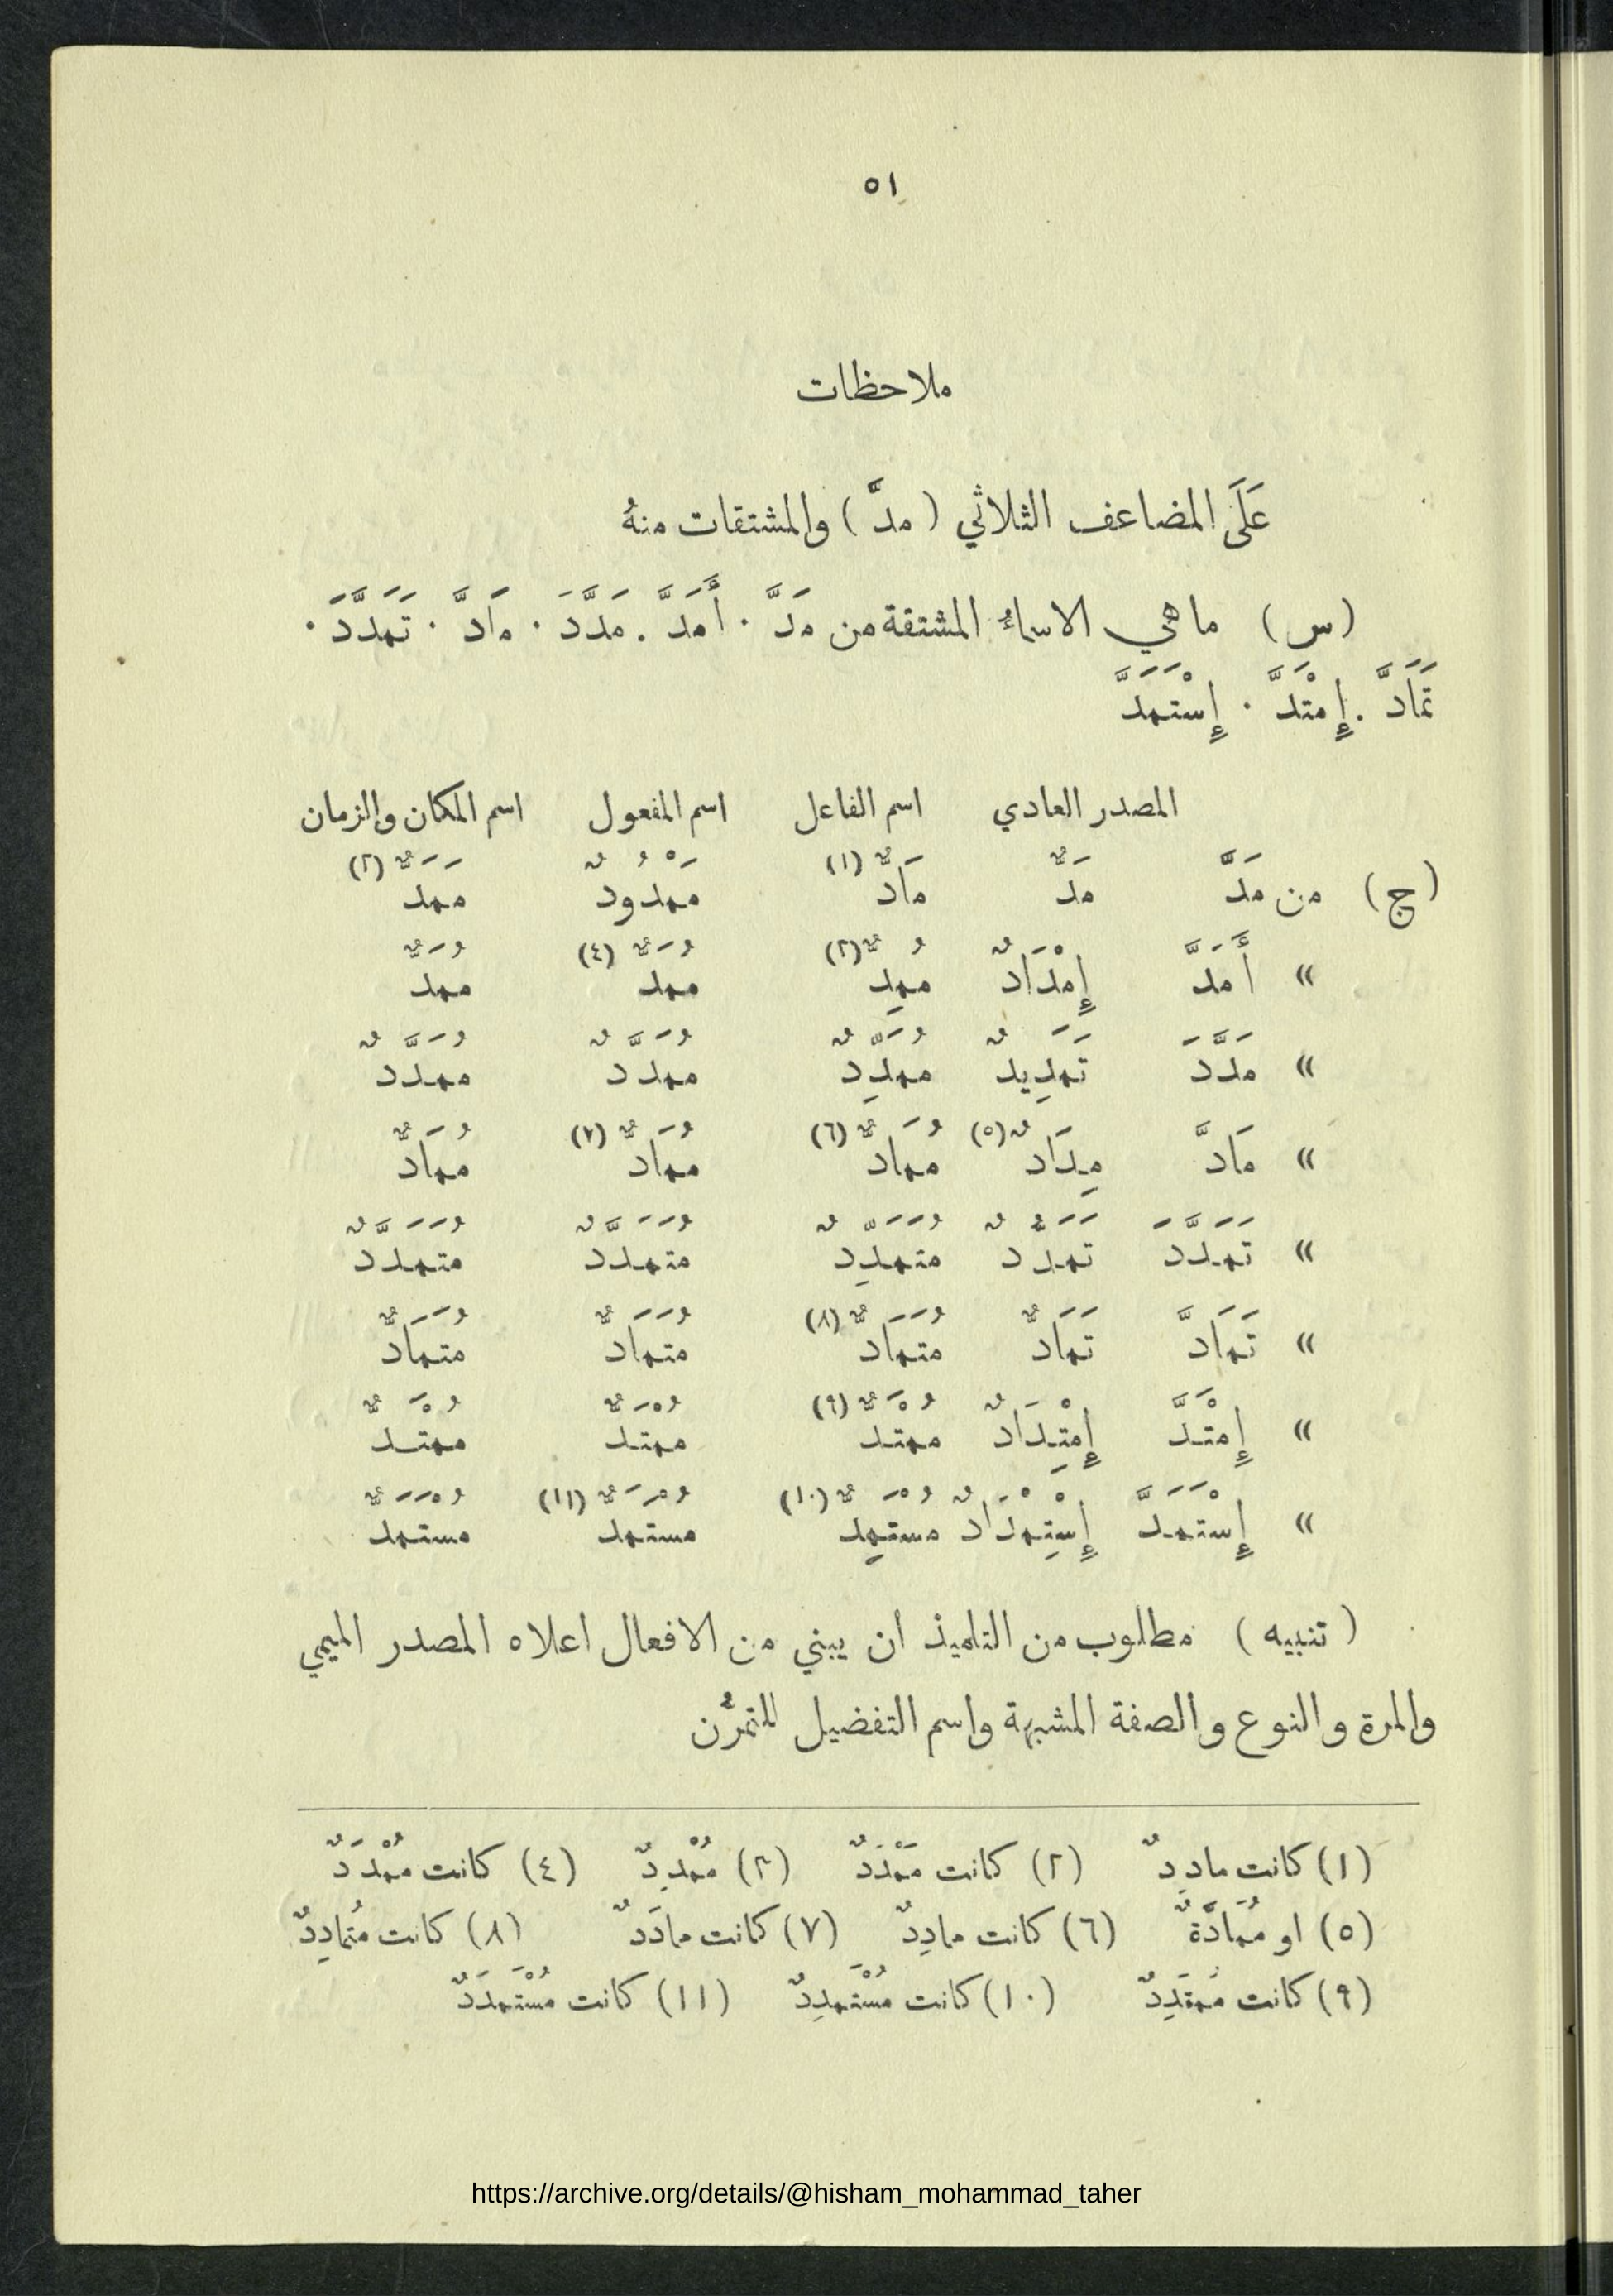 ٥١
ملاحظات
عَلَى المضاعف الثلاثي ( مدَّ ) والمشتقات منهُ
(س) ما هي الاسماءُ المشتقة من مَدَّ · أَمَدَّ . مَدَّدَ · مَادَّ · تَمَدَّدَ ·
تَمَادَّ . إِمْتَدَّ · إِسْتَمَدَّ
المصدر العادي اسم الفاعل اسم المفعول اسم المكان والزمان
(ج) من مَدَّ مَدٌّ مَادٌّ (١) مَمْدُودٌ مَمَدٌّ (٢)
» أَمَدَّ إِمْدَادٌ مُمِدٌّ (٣) مُمَدٌّ (٤) مُمَدٌّ
» مَدَّدَ تَمَدِيدٌ مُمَدِّدٌ مُمَدَّدٌ مُمَدَّدٌ
» مَادَّ مِدَادٌ (٥) مُمَادٌّ (٦) مُمَادٌّ (٧) مُمَادٌّ
» تَمَدَّدَ تَمَدُّدٌ مُتَمَدِّدٌ مُتَمَدَّدٌ مُتَمَدَّدٌ
» تَمَادَّ تَمَادٌّ مُتَمَادٌّ (٨) مُتَمَادٌّ مُتَمَادٌّ
» إِمْتَدَّ إِمْتِدَادٌ مُمْتَدٌّ (٩) مُمْتَدٌّ مُمْتَدٌّ
» إِسْتَمَدَّ إِسْتِمْدَادٌ مُسْتَمِدٌّ (١٠) مُسْتَمَدٌّ (١١) مُسْتَمَدٌّ
( تنبيه ) مطلوب من التلميذ ان يبني من الافعال اعلاه المصدر الميمي
والمرة والنوع والصفة المشبهة واسم التفضيل للتمرُّن
(١) كانت مادِدٌ (٢) كانت مَمْدَدٌ (٣) مُمْدِدٌ (٤) كانت مُمْدَدٌ
(٥) او مُمَادَّةٌ (٦) كانت مادِدٌ (٧) كانت مادَدٌ (٨) كانت مُتَمادِدٌ
(٩) كانت مُمتَدِدٌ (١٠) كانت مُسْتَمدِدٌ (١١) كانت مُسْتَمدَدٌ
https://archive.org/details/@hisham_mohammad_taher